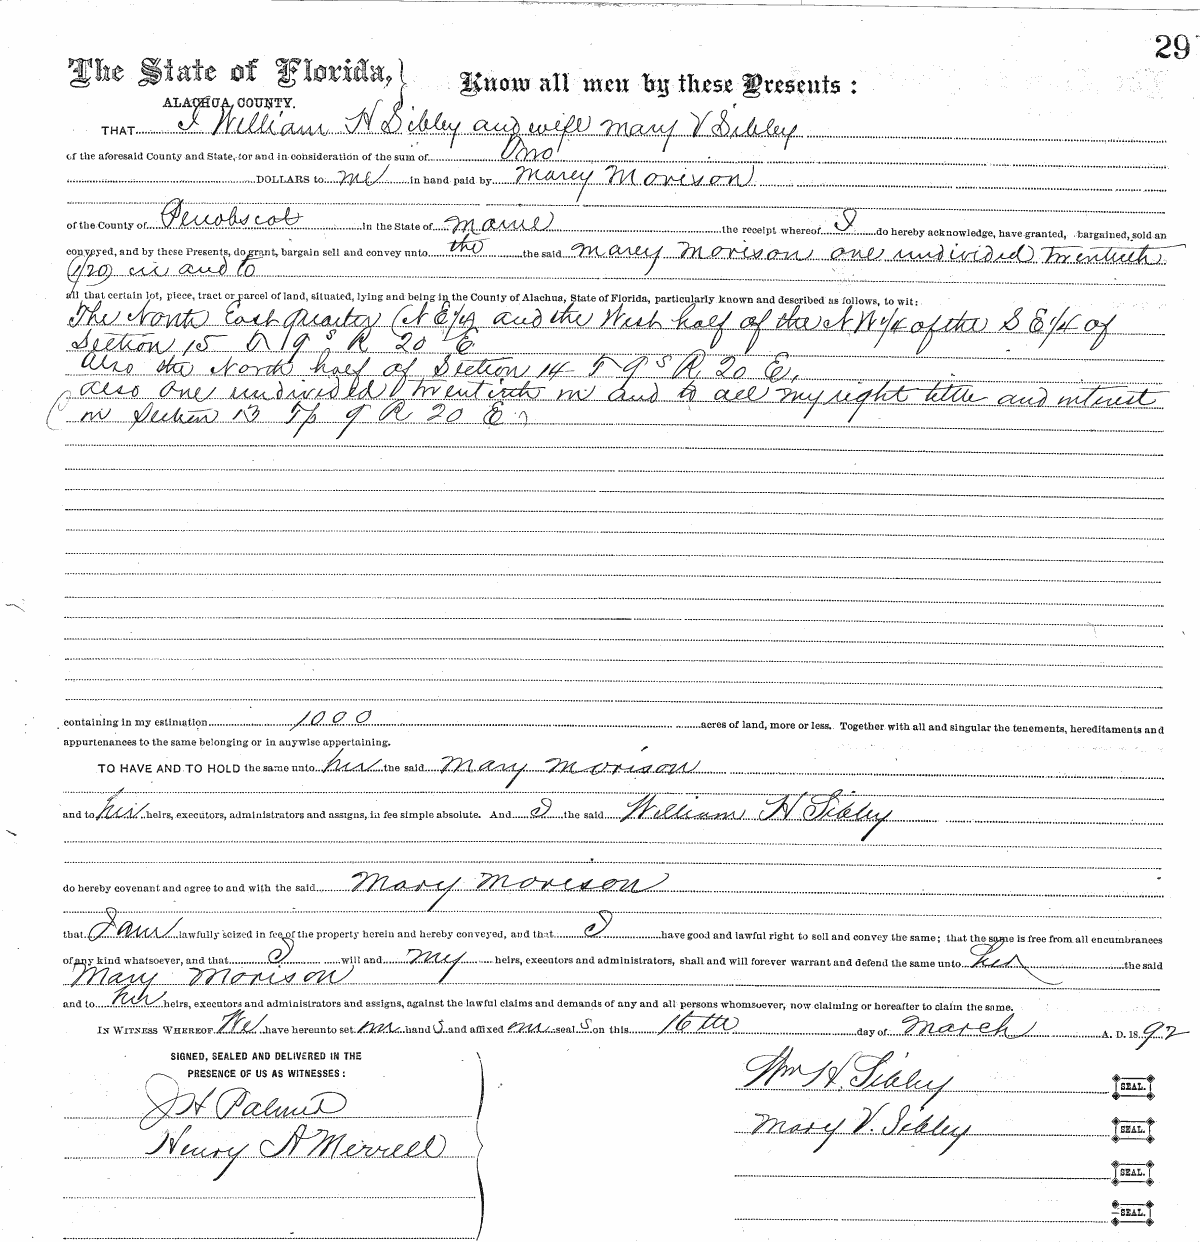 29
The State of Florida, Know all men by these Presents:
ALACHUA COUNTY.
THAT I William H Sibley and wife Mary V Sibley
of the aforesaid County and State, for and in consideration of the sum of One
DOLLARS to me in hand paid by Marey Morison
of the County of Penobscot in the State of Maine the receipt whereof I do hereby acknowledge, have granted, bargained, sold an
conveyed, and by these Presents, do grant, bargain sell and convey unto the the said Marey Morison one undivided twentieth
(1/20) in and to
all that certain lot, piece, tract or parcel of land, situated, lying and being in the County of Alachua, State of Florida, particularly known and described as follows, to wit:
The North East quarter (N E 1/4) and the West half of the N W 1/4 of the S E 1/4 of
Section 15 T 9 S R 20 E
Also the North half of Section 14 T 9 S R 20 E,
also one undivided twentieth in and to all my right title and interest
in Section 13 Tp 9 R 20 E
containing in my estimation 1000 acres of land, more or less. Together with all and singular the tenements, hereditaments and
appurtenances to the same belonging or in anywise appertaining.
TO HAVE AND TO HOLD the same unto her the said Mary Morison
and to her heirs, executors, administrators and assigns, in fee simple absolute. And I the said William H Sibley
do hereby covenant and agree to and with the said Mary Morison
that I am lawfully seized in fee of the property herein and hereby conveyed, and that I have good and lawful right to sell and convey the same; that the same is free from all encumbrances
of any kind whatsoever, and that I will and my heirs, executors and administrators, shall and will forever warrant and defend the same unto her the said
Mary Morison
and to her heirs, executors and administrators and assigns, against the lawful claims and demands of any and all persons whomsoever, now claiming or hereafter to claim the same.
IN WITNESS WHEREOF We have hereunto set our hand s and affixed our seal s on this 16th day of March A. D. 1892
SIGNED, SEALED AND DELIVERED IN THE
PRESENCE OF US AS WITNESSES:
Wm H. Sibley SEAL.
J H Palmer
Mary V. Sibley SEAL.
Henry A Merrell
SEAL.
SEAL.